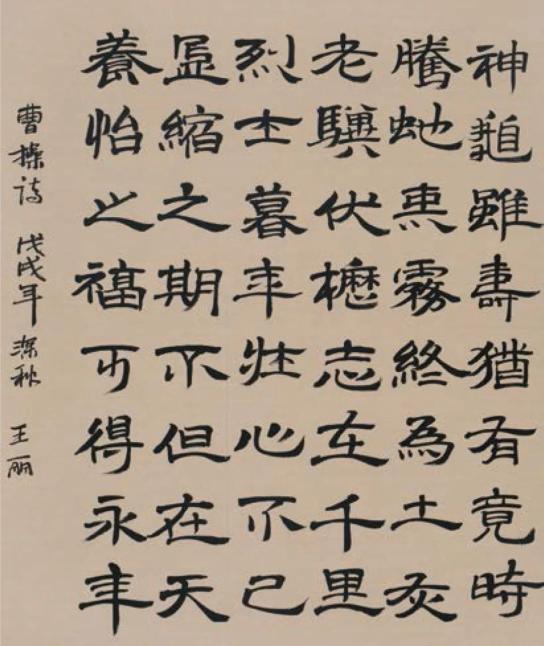 神龜雖壽猶有竟時
騰虵乘霧終為土灰
老驥伏櫪志在千里
烈士暮年壯心不已
盈縮之期不但在天
養怡之福可得永年
曹操诗 戊戌年 深秋 王丽